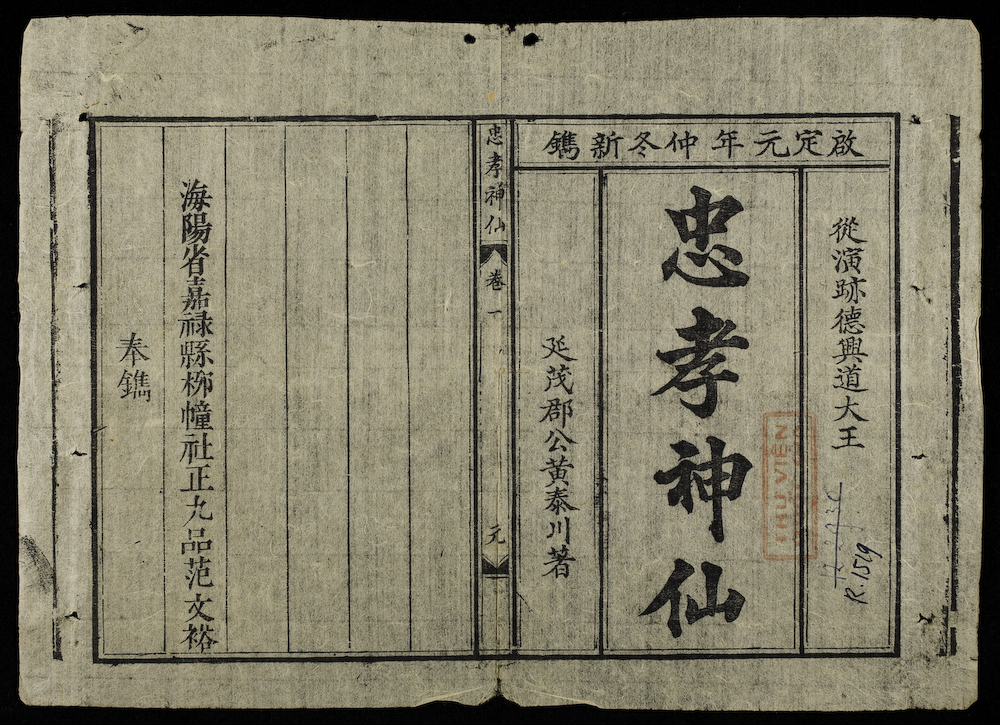 啟定元年仲冬新鐫
從演跡德興道大王
忠孝神仙
延茂郡公黄泰川著
忠孝神仙 卷一 元
海陽省嘉禄縣栁幢社正九品范文裕
奉鐫
THU VIEN
R.1519